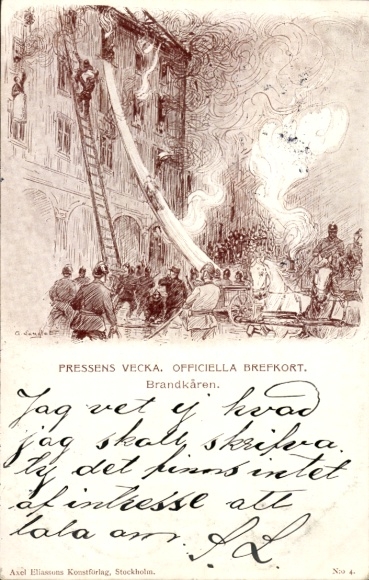 PRESSENS VECKA. OFFICIELLA BREFKORT.
Brandkåren.
Jag vet ej hvad
jag skall skrifva.
ty det finns intet
af intresse att
tala om. A. L.
Axel Eliassons Konstförlag, Stockholm.
N:o 4.